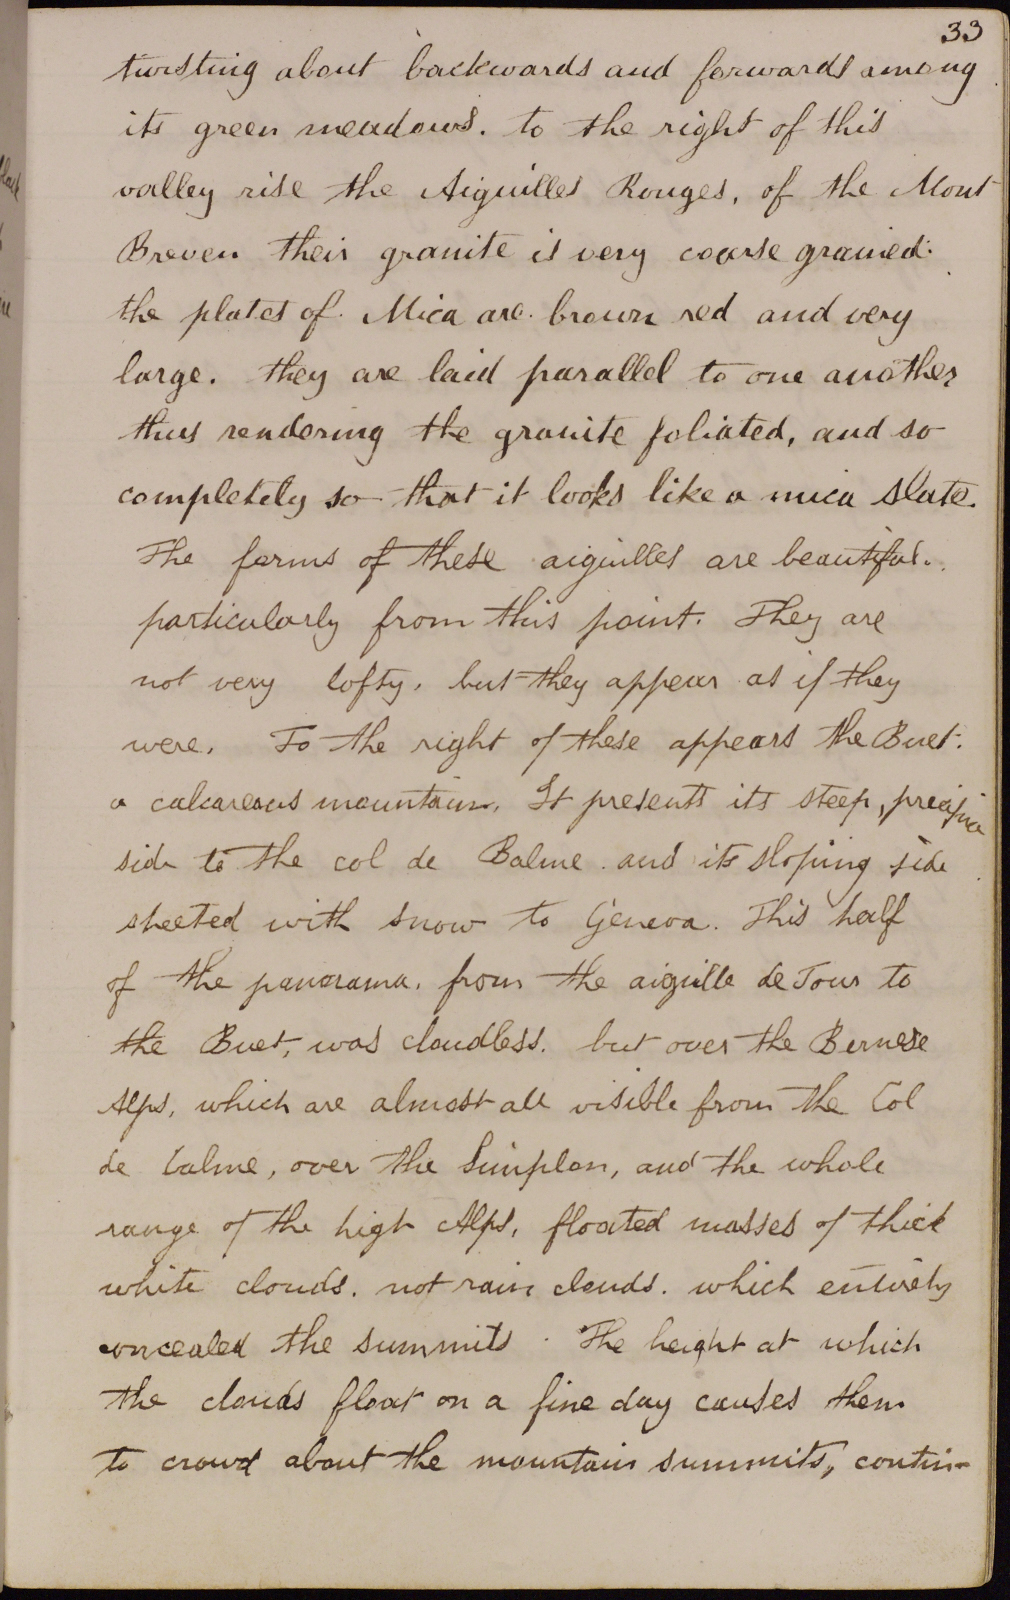 33
twisting about backwards and forwards among
its green meadows. to the right of this
valley rise the Aiguilles Rouges, of the Mont
Breven their granite is very coarse grained.
the plates of. Mica are. brown red and very
large. they are laid parallel to one another
thus rendering the granite foliated, and so
completely so that it looks like a mica slate.
The forms of these aiguilles are beautiful.
particularly from this point. They are
not very lofty, but they appear as if they
were. To the right of these appears the Buet.
a calcareous mountain. It presents its steep, precipice
side to the col de Balme. and its sloping side
sheeted with snow to Geneva. This half
of the panorama, from the aiguille de Tour to
the Buet, was cloudless. but over the Bernese
Alps, which are almost all visible from the Col
de balme, over the Simplon, and the whole
range of the high Alps, floated masses of thick
white clouds. not rain clouds. which entirely
concealed the summits. The height at which
the clouds float on a fine day causes them
to crowd about the mountain summits, contin-